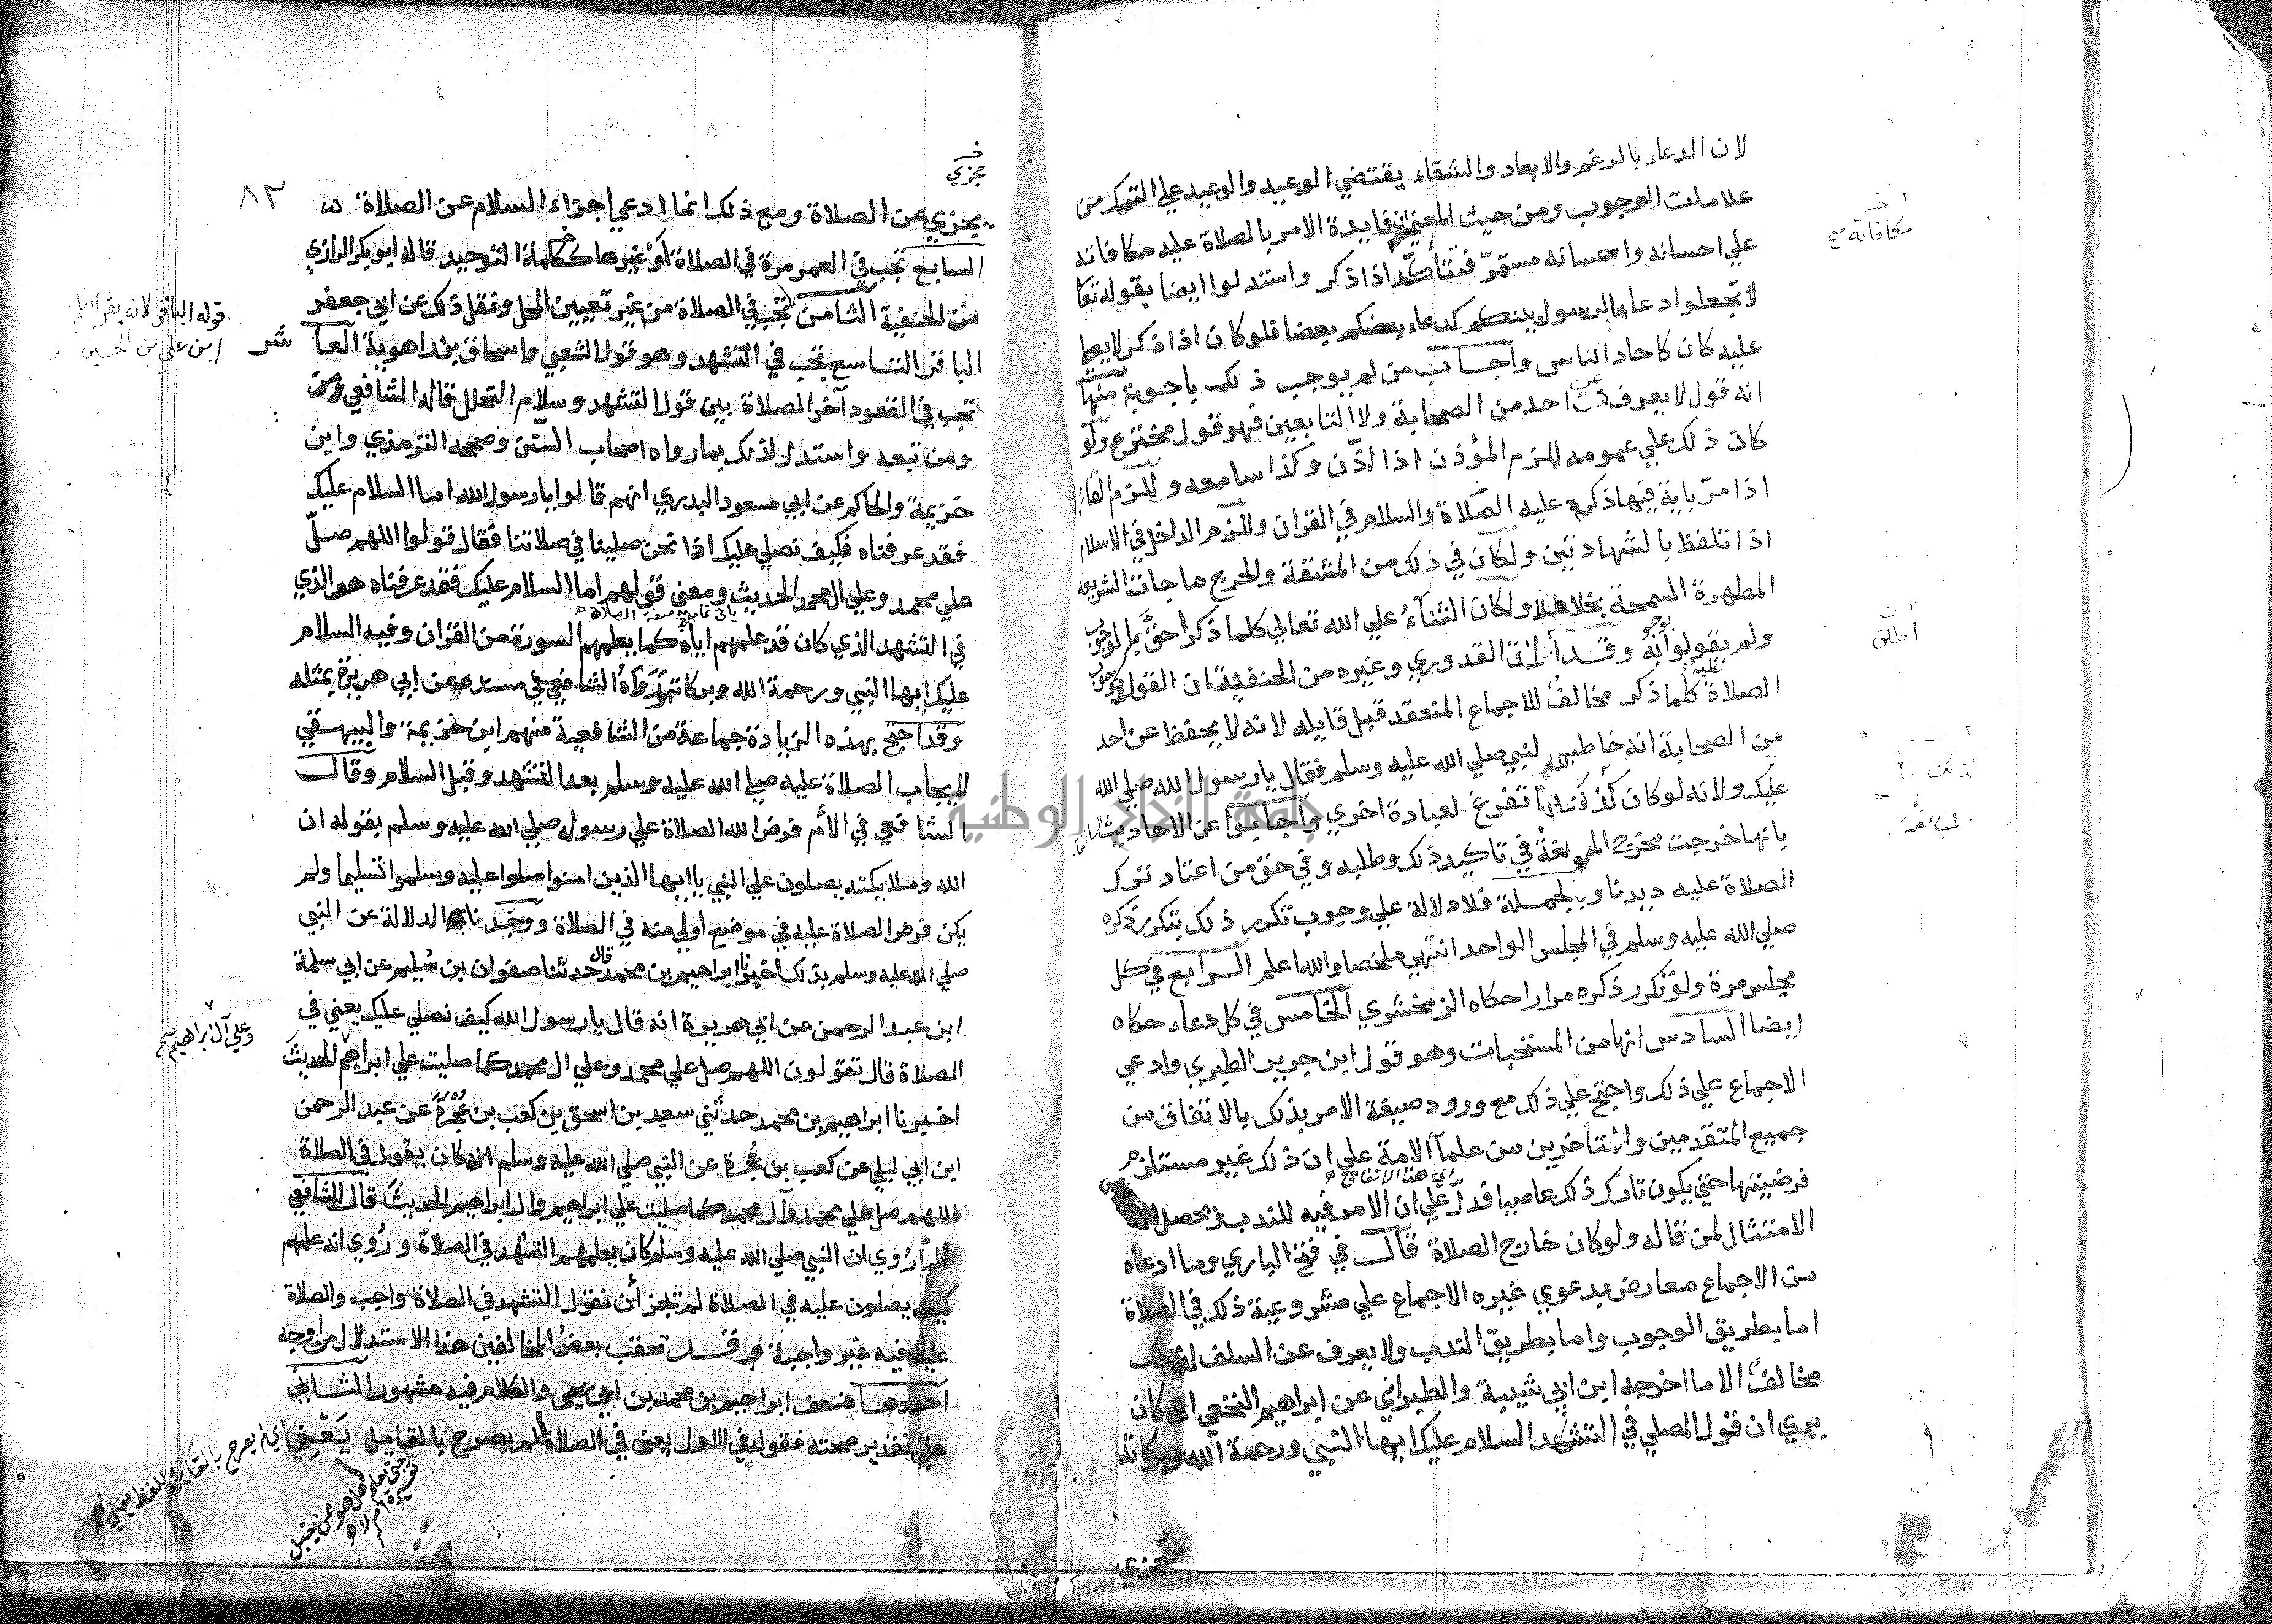 لان الدعاء بالرغم والابعاد والشقاء يقتضي الوعيد والوعيد علي الترك من
علامات الوجوب ومن حيث المعني ان فايدة الامر بالصلاة عليه مكافاته
علي احسانه واحسانه مستمرّ فتتأكّد اذا ذكر واستدلوا ايضا بقوله تعا
لا تجعلوا دعاء الرسول بينكم كدعاء بعضكم بعضا فلو كان اذا ذكر لا يصلي
عليه كان كاحاد الناس واجاب من لم يوجب ذلك باجوبة منها
انه قول لا يعرف عن احد من الصحابة ولا التابعين فهو قول مخترع ولو
كان ذلك علي عمومه للزم المؤذن اذا اذّن وكذا سامعه وللزم القارئ
اذا مرّ باية فيها ذكره عليه الصلاة والسلام في القران وللزم الداخل في الاسلام
اذا تلفظ بالشهادتين ولكان في ذلك من المشقة والحرج ما جات الشريعة
المطهرة السمحة بخلافه ولكان الثنآء علي الله تعالي كلما ذكر احق بالوجوب
ولم يقولوا به وقد أطلق القدوري وغيره من الحنفية ان القول بوجوب
الصلاة عليه كلما ذكر مخالف للاجماع المنعقد قبل قايله لانه لا يحفظ عن احد
من الصحابة انه خاطب النبي صلي الله عليه وسلم فقال يا رسول الله صلي الله
عليك ولانه لو كان كذلك لم تفرغ لعبادة اخري واجابوا عن الاحاديث
بانها خرجت مخرج المبالغة في تاكيد ذلك وطلبه وفي حق من اعتاد ترك
الصلاة عليه ديدنا وبالجملة فلا دلالة علي وجوب تكرر ذلك بتكرر ذكره
صلي الله عليه وسلم في المجلس الواحد انتهي ملخصا والله اعلم الرابع في كل
مجلس مرة ولو تكرر ذكره مرارا حكاه الزمخشري الخامس في كل دعاء حكاه
ايضا السادس انها من المستحبات وهو قول ابن جرير الطبري وادعي
الاجماع علي ذلك واحتج علي ذلك مع ورود صيغة الامر بذلك بالاتفاق من
جميع المتقدمين والمتاخرين من علمآ الامة علي ان ذلك غير مستلزم
اي هذا الاتفاق
فرضيتها حتي يكون تارك ذلك عاصيا فدلّ علي ان الامر فيه للندب ويحصل
الامتثال لمن قاله ولو كان خارج الصلاة قال في فتح الباري وما ادعاه
من الاجماع معارض بدعوي غيره الاجماع علي مشروعية ذلك في الصلاة
اما بطريق الوجوب واما بطريق الندب ولا يعرف عن السلف لذلك
مخالف الا ما اخرجه ابن ابي شيبة والطبراني عن ابراهيم النخعي انه كان
يري ان قول المصلي في التشهد السلام عليك ايها النبي ورحمة الله وبركاته
تجزي
مكافاة
اطلق
كذلك
المبالغة
مجزي
٨٣
يجزي عن الصلاة ومع ذلك انما ادعي اجزاء السلام عن الصلاة
السابع تجب في العمر مرة في الصلاة أو غيرها ككلمة التوحيد قاله ابو بكر الرازي
من الحنفية الثامن تجب في الصلاة من غير تعيين المحل ونقل ذلك عن ابي جعفر
الباقر التاسع تجب في التشهد وهو قول الشعبي واسحاق بن راهوية العا شر
قوله الباقر لانه بقر العلم
ابن علي بن الحسين
تجب في القعود آخر الصلاة بين قول التشهد وسلام التحلل قاله الشافعي
ومن تبعه واستدل لذلك بما رواه اصحاب السنن وصححه الترمذي وابن
خزيمة والحاكم عن ابي مسعود البدري انهم قالوا يا رسول الله اما السلام عليك
فقد عرفناه فكيف نصلي عليك اذا نحن صلينا في صلاتنا فقال قولوا اللهم صلّ
علي محمد وعلي ال محمد الحديث ومعني قولهم اما السلام عليك فقد عرفناه هو الذي
في التشهد الذي كان قد علمهم اياه كما يعلمهم السورة من القران وفيه السلام
عليك ايها النبي ورحمة الله وبركاته رواه الشافعي في مسنده عن ابي هريرة بمثله
وقد احتج بهذه الزيادة جماعة من الشافعية منهم ابن خزيمة والبيهقي
لايجاب الصلاة عليه صلي الله عليه وسلم بعد التشهد وقبل السلام وقال
الشافعي في الأم فرض الله الصلاة علي رسوله صلي الله عليه وسلم بقوله ان
الله وملايكته يصلون علي النبي يا ايها الذين امنوا صلوا عليه وسلموا تسليما ولم
يكن فرض الصلاة عليه في موضع اولي منه في الصلاة ووجدنا الدلالة عن النبي
صلي الله عليه وسلم بذلك أخبرنا ابراهيم بن محمد قال حدثنا صفوان بن سُليم عن ابي سلمة
ابن عبد الرحمن عن ابي هريرة انه قال يا رسول الله كيف نصلي عليك يعني في
وعلي آل ابراهيم صح
الصلاة قال تقولون اللهم صل علي محمد وعلي ال محمد كما صليت علي ابراهيم الحديث
اخبرنا ابراهيم بن محمد حدثني سعيد بن اسحق بن كعب بن عُجْرَة عن عبد الرحمن
ابن ابي ليلي عن كعب بن عجرة عن النبي صلي الله عليه وسلم انه كان يقول في الصلاة
اللهم صل علي محمد وآل محمد كما صليت علي ابراهيم وال ابراهيم الحديث قال الشافعي
فلما رُوي ان النبي صلي الله عليه وسلم كان يعلمهم التشهد في الصلاة ورُوي انه علمهم
كيف يصلون عليه في الصلاة لم تجز أن نقول التشهد في الصلاة واجب والصلاة
عليه فيه غير واجبة وقد تعقب بعض المخالفين هذا الاستدلال من أوجه
احدها ضعف ابراهيم بن محمد بن ابي يحيي والكلام فيه مشهور الثاني
علي تقدير صحته فقوله في الاول يعني في الصلاة لم يصرح بالقايل يَعْنِي
اي لم يصرح بالقايل للفظ يعني
جامعة النجاح الوطنية